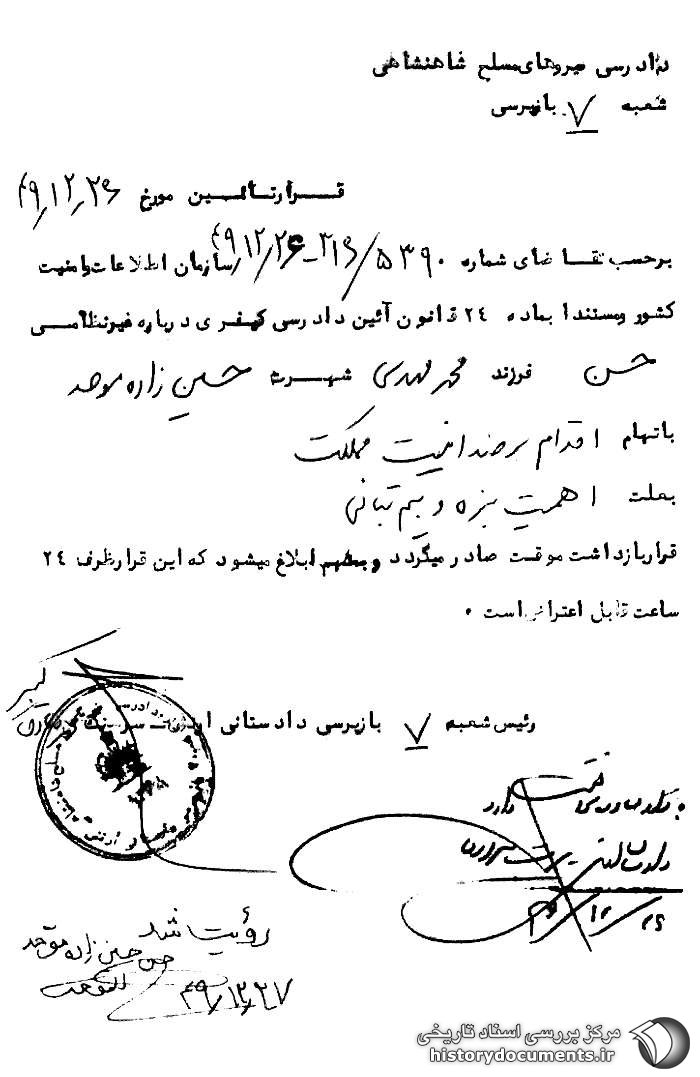 دادرسی نیروهای مسلح شاهنشاهی
شعبه ۷ بازپرسی
قرار تامین مورخ ۴۹٫۱۲٫۲۶
برحسب تقاضای شماره ۵۳۹۰/۳۱۶-۴۹/۱۲/۲۶ سازمان اطلاعات و امنیت
کشور و مستندا بماده ۲۴ قانون آئین دادرسی کیفری درباره غیرنظامی
حسن فرزند محمد مهدی شهرت حسین زاده موحد
باتهام اقدام بر ضد امنیت مملکت
بعلت اهمیت بزه و بیم تبانی
قرار بازداشت موقت صادر میگردد و بمتهم ابلاغ میشود که این قرار ظرف ۲۴
ساعت قابل اعتراض است ۰
رئیس شعبه ۷ بازپرسی دادستانی ارتش سرهنگ
رؤیت شد
حسن حسین زاده موحد
۴۹٫۱۲٫۲۷
مرکز بررسی اسناد تاریخی
historydocuments.ir